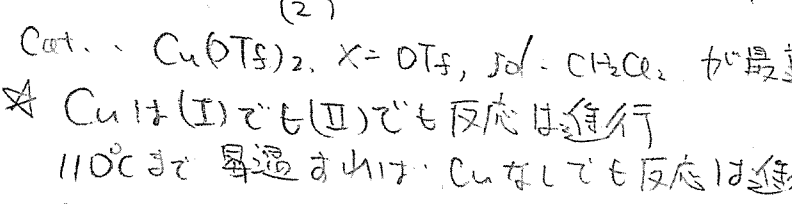 (2)
Cat.. Cu(OTf)2. X=OTf, sol. CH2Cl2 が最
☆ Cuは(I)でも(II)でも反応は進行
110℃まで昇温すれば Cuなしでも反応は進